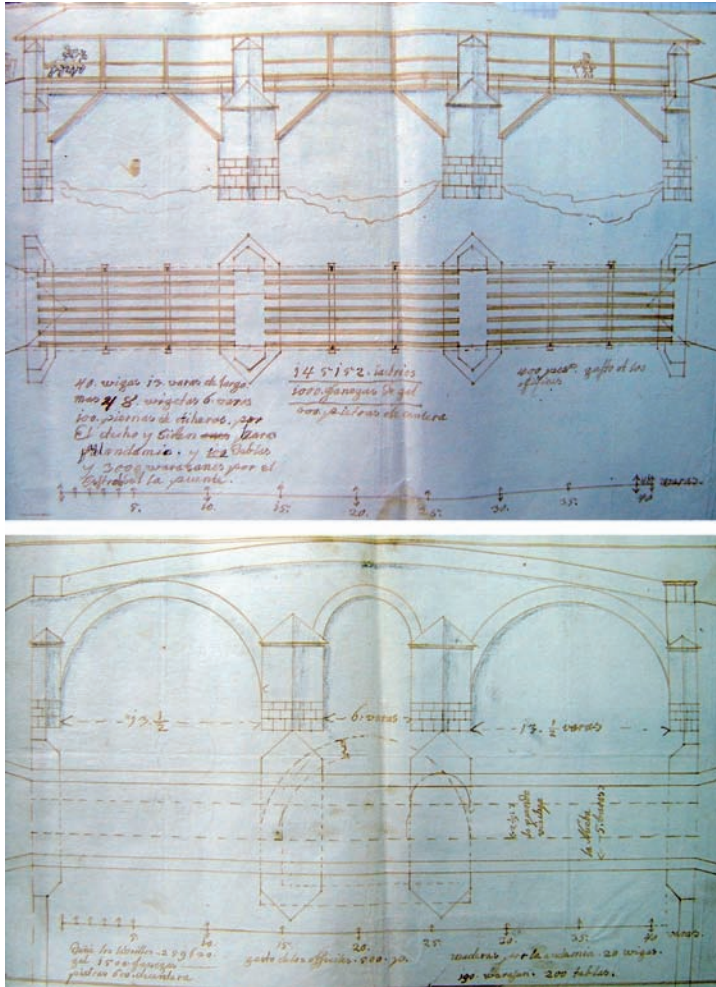 40. vigas 13 varas de largo.
mas 48. vigetas 6. varas
100. piernas de tiheras, por
El techo y sirven para
el andamio. y 100 tablas
y 3000 varasones por el
la puente.
145152. ladrios
1000. fanegas de gal
400. piedras de cantera
400 pesos. gasto de los
officiales
5. 10. 15. 20. 25. 30. 35. 40 varas
13. 1/2
6. varas
13. 1/2 varas
de grande
la Ancha
5. 10. 15. 20. 25. 30. 35. 40. varas
los ladrillos. 259620
gal 1500 fanegas
piedras 600. de cantera
gasto de los officiales. 800. po.
maderas, por la andamia. 20 vigas.
190. varasan. 200 tablas.